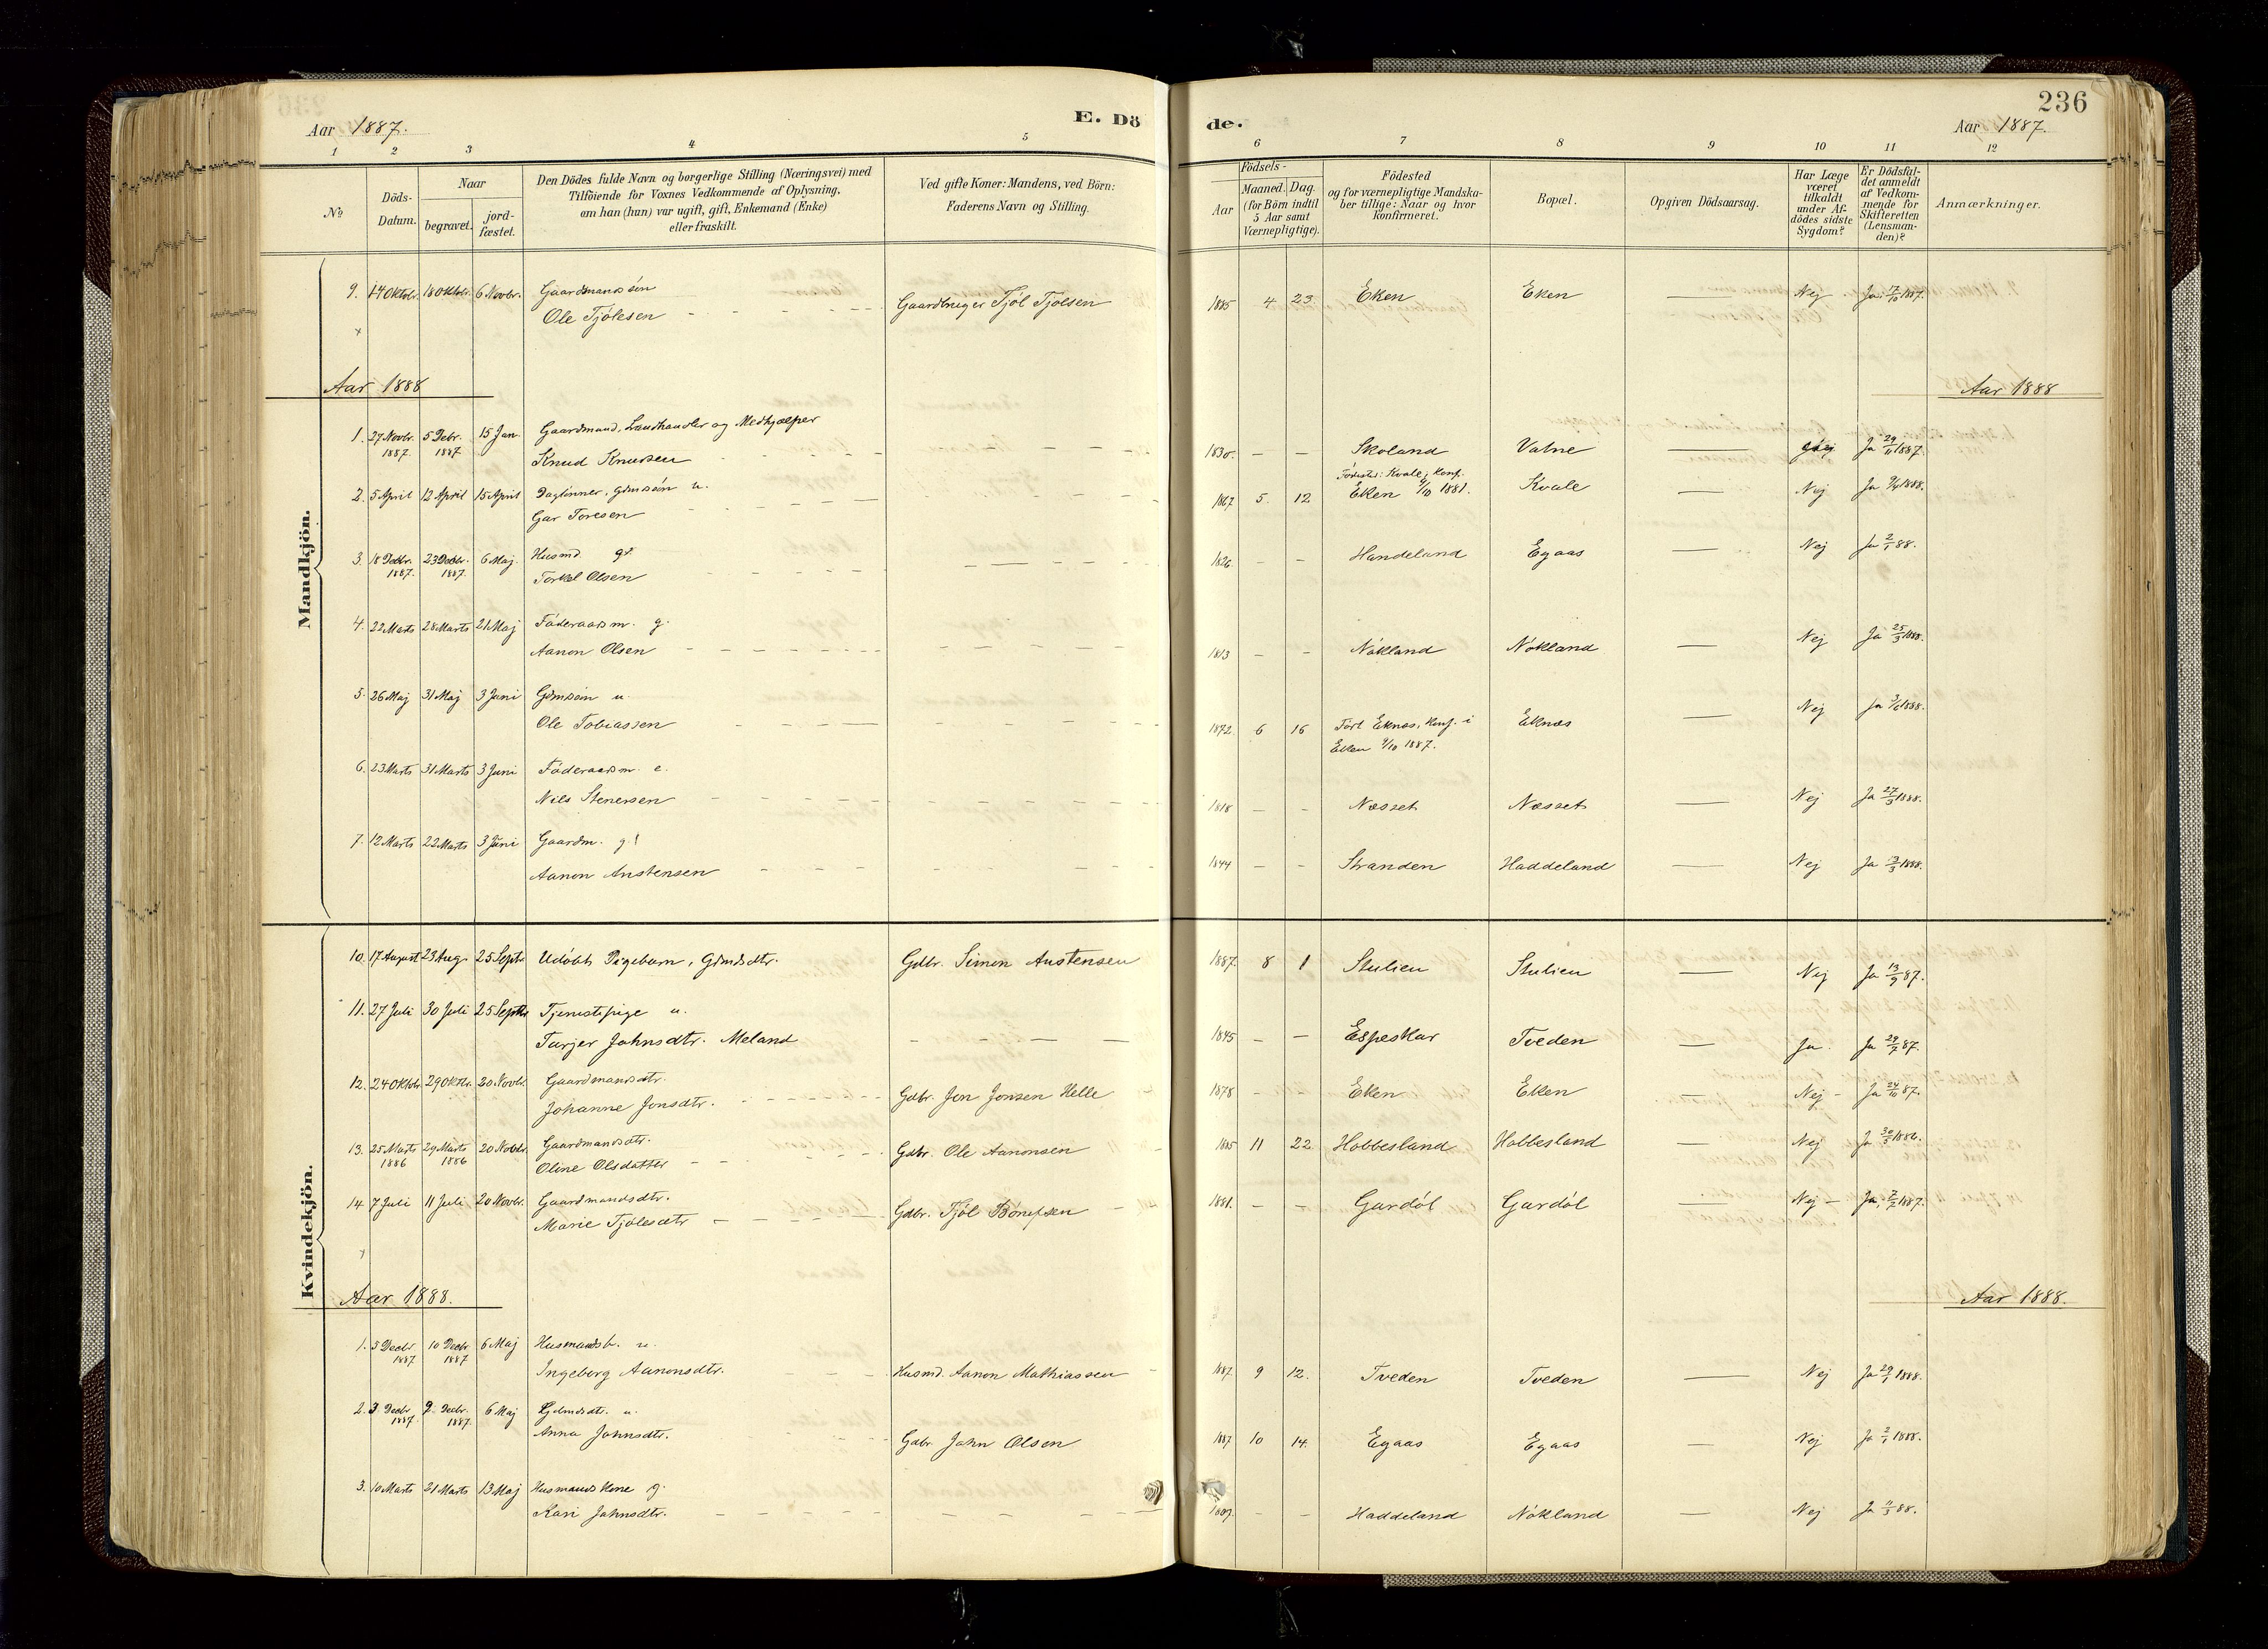 236
Aar 1887.
E. Dö
de.
Aar 1887.
1 2 3 4 5 6 7 8 9 10 11 12
No
Döds-Datum.
Naar
begravet.
jord-fæstet.
Den Dödes fulde Navn og borgerlige Stilling (Næringsvei) med
Tilföiende for Voxnes Vedkommende af Oplysning,
om han (hun) var ugift, gift, Enkemand (Enke)
eller fraskilt.
Ved gifte Koner: Mandens, ved Börn:
Faderens Navn og Stilling.
Födsels-
Aar
Maaned. Dag.
(for Börn indtil
5 Aar samt
Værnepligtige).
Födested
og for værnepligtige Mandska-
ber tillige: Naar og hvor
konfirmeret.
Bopæl.
Opgiven Dödsaarsag.
Har Læge
været
tilkaldt
under Af-
dödes sidste
Sygdom?
Er Dödsfal-
det anmeldt
af Vedkom-
mende for
Skifteretten
(Lensman-
den)?
Anmærkninger.
Mandkjön.
9. 14 Oktobr. 18 Oktobr. 6 Novbr. Gaardmandssön
Ole Tjölesen Gaardbruger Tjöl Tjölsen 1885 4 23 Eken Eken Nej Ja 17/10 1887.
Aar 1888
Aar 1888
1. 27 Novbr. 5 Debr. 15 Jan. Gaardmand, Landhandler og Medhjælper
1887. 1887
Knud Knudsen 1830. — — Skoland Vatne — Ja 29/11 1887.
2. 5 April 12 April 15 April Daglönner, Gdmssön u.
Gar Toresen 1867 5. 12 Födested: Kvale; Konf.
Eken 9/10 1881. Kvale — Nej Ja 1888.
3. 18 Decbr. 23 Decbr. 6 Maj. Husmd. gt.
1887. 1887.
Torkel Olsen 1826. — — Handeland Egaas — Nej Ja 2/1 88.
4. 22 Marts 28 Marts 21 Maj Föderaadsm. g.
Aanon Olsen 1813 — — Nökland Nökland — Nej Ja 25/3 1888.
5. 26 Maj 31 Maj 3 Juni Gdmssön u.
Ole Tobiassen 1872. 6 16 Födt Eknes, Konf. i
Eken 9/10 1887. Eknes — Nej Ja 3/6 1888.
6. 23 Marts 31 Marts 3 Juni Föderaadsm. e.
Nils Stenersen 1818 — — Nesset Nesset — Nej Ja 27/3 1888.
7. 12 Marts 22 Marts 3 Juni Gaardm. g!
Aanon Anstensen 1844 — — Stranden Haddeland — Nej Ja 13/3 1888.
Kvindekjön.
10. 17 August 23 Aug. 25 Septr. Udöbt Pigebarn, Gdmdsdtr. Gdbr. Simon Anstensen 1887. 8 1 Stulien Stulien — Nej Ja 13/9 87.
11. 27 Juli 30 Juli 25 Septbr Tjenestepige u.
Tarjer Johnsdtr. Meland 1845 — — Espeskar Tveden — Ja. Ja 29/7 87.
12. 24 Oktobr. 29 Oktbr. 20 Novbr. Gaardmandsdtr.
Johanne Jonsdtr. Gdbr. Jon Jonsen Helle 1878 — Eken Eken — Nej — Ja 24/10 87.
13. 25 Marts 29 Marts 20 Novbr. Gaardmandsdtr.
1886 1886
Oline Olsdatter Gdbr. Ole Aanonsen 1885 11 22 Hobbesland Hobbesland — Nej Ja 30/3 1886.
14. 7 Juli 11 Juli 20 Novbr. Gaardmandsdtr.
Marie Tjölesdtr Gdbr. Tjöl 1881. — — Gardöl Gardöl — Nej — Ja, 1887.
Aar 1888.
Aar 1888.
1. 5 Decbr 10 Decbr 6 Maj Husmandsb. u.
1887 1887
Ingeborg Aanonsdtr. Husmd. Aanon Mathiassen 1887. 9 12. Tveden Tveden — Nej Ja 29/1 1888.
2. 3 Decbr. 9 Decbr. 6 Maj Gdmdsdtr. u.
1887. 1887.
Anna Johnsdtr. Gdbr John Olsen 1887 10 14. Egaas Egaas — Nej Ja 2/1 1888.
3. 10 Marts 21 Marts 13 Maj Husmandskone g.
Kari Johnsdtr. — — Haddeland Nökland — Nej Ja 11/3 88.